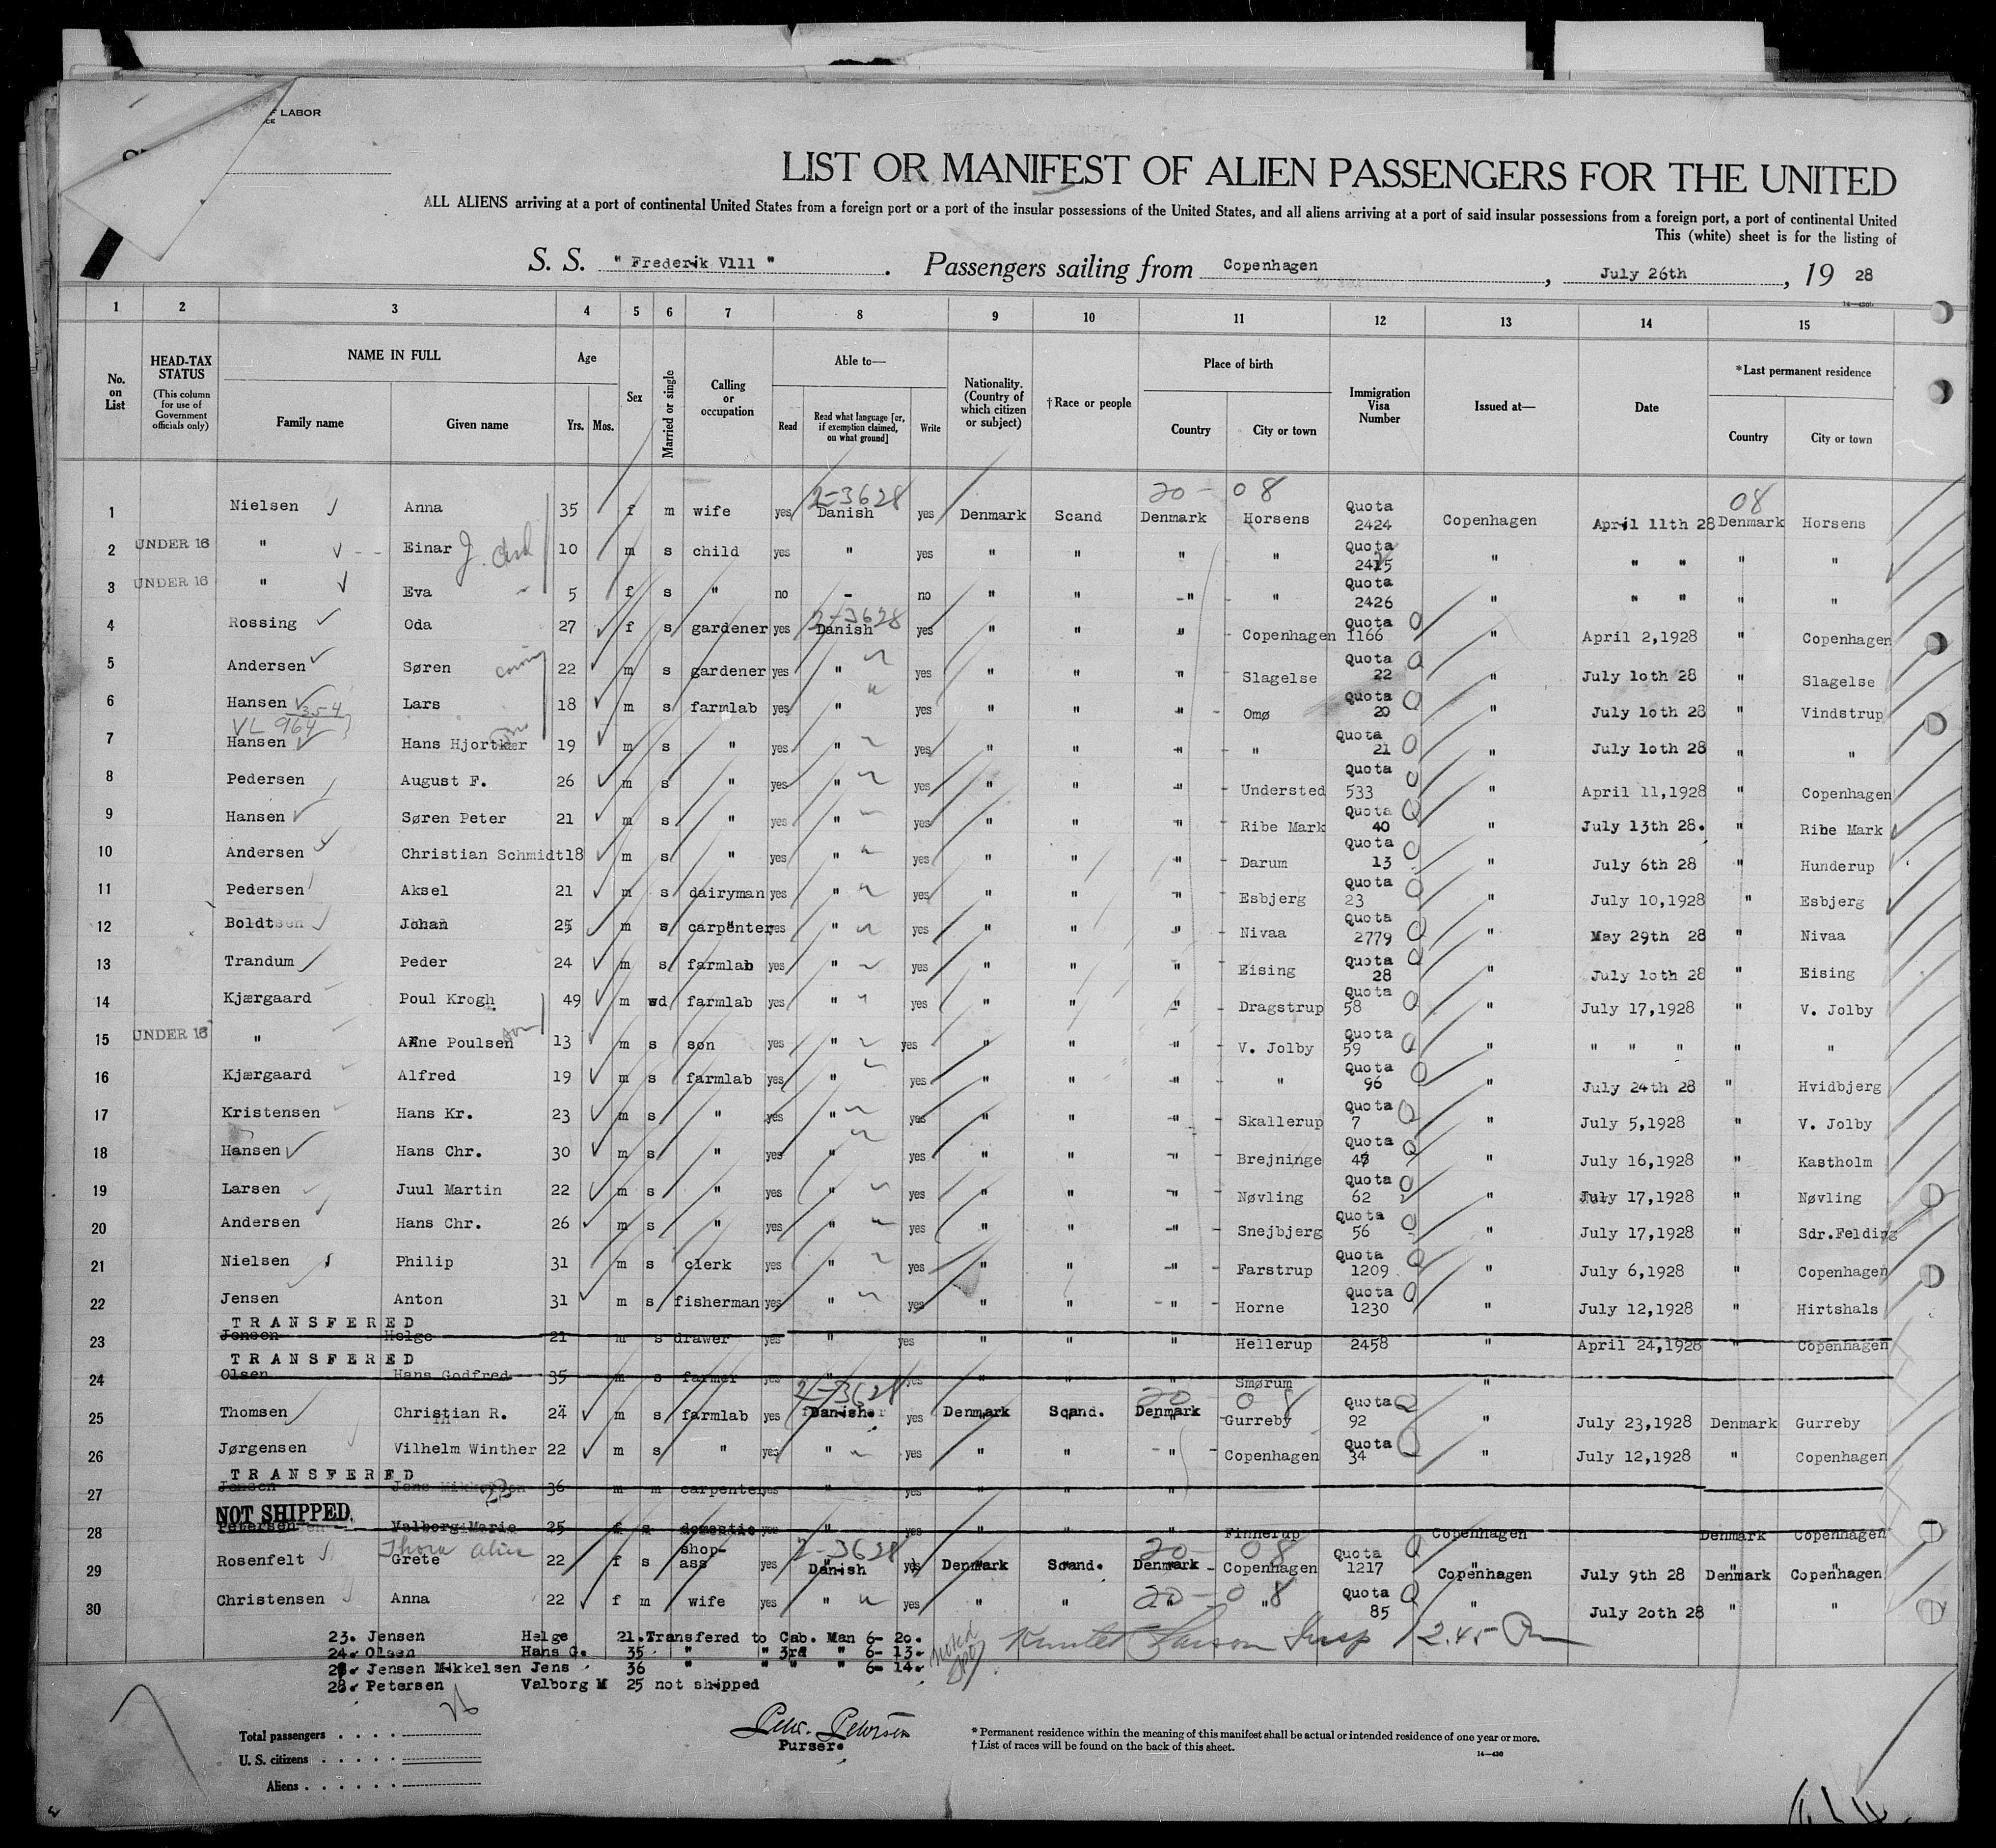 F LABOR
CE
LIST OR MANIFEST OF ALIEN PASSENGERS FOR THE UNITED
ALL ALIENS arriving at a port of continental United States from a foreign port or a port of the insular possessions of the United States, and all aliens arriving at a port of said insular possessions from a foreign port, a port of continental United
This (white) sheet is for the listing of
S. S. " Frederik Vlll " . Passengers sailing from Copenhagen , July 26th , 19 28
14—430
1 2 3 4 5 6 7 8 9 10 11 12 13 14 15
No. on List HEAD-TAX STATUS (This column for use of Government officials only) NAME IN FULL Family name Given name Age Yrs. Mos. Sex Married or single Calling or occupation Able to— Read Read what language [or, if exemption claimed, on what ground] Write Nationality. (Country of which citizen or subject) †Race or people Place of birth Country City or town Immigration Visa Number Issued at— Date *Last permanent residence Country City or town
2-3628 20 - 08 08
1 Nielsen Anna 35 f m wife yes Danish yes Denmark Scand Denmark Horsens Quota 2424 Copenhagen April 11th 28 Denmark Horsens
2 UNDER 16 " Einar J. 10 m s child yes " yes " " " " Quota 2415 " " " " "
3 UNDER 16 " Eva 5 f s " no - no " " " " Quota 2426 " " " " "
2-3628
4 Rossing Oda 27 f s gardener yes Danish yes " " " Copenhagen Quota 1166 " April 2,1928 " Copenhagen
5 Andersen Søren 22 m s gardener yes " yes " " " Slagelse Quota 22 " July 1oth 28 " Slagelse
6 Hansen Lars 18 m s farmlab yes " yes " " " Omø Quota 20 " July 1oth 28 " Vindstrup
354
VL 964
7 Hansen Hans Hjortkær 19 m s " yes " yes " " " " Quota 21 " July 1oth 28 " "
8 Pedersen August F. 26 m s " yes " yes " " " Understed Quota 533 " April 11,1928 " Copenhagen
9 Hansen Søren Peter 21 m s " yes " yes " " " Ribe Mark Quota 40 " July 13th 28. " Ribe Mark
10 Andersen Christian Schmidt 18 m s " yes " yes " " " Darum Quota 13 " July 6th 28 " Hunderup
11 Pedersen Aksel 21 m s dairyman yes " yes " " " Esbjerg Quota 23 " July 10,1928 " Esbjerg
12 Boldt Johan 25 m s carpenter yes " yes " " " Nivaa Quota 2779 " May 29th 28 " Nivaa
13 Trandum Peder 24 m s farmlab yes " yes " " " Eising Quota 28 " July 1oth 28 " Eising
14 Kjærgaard Poul Krogh 49 m wd farmlab yes " yes " " " Dragstrup Quota 58 " July 17,1928 " V. Jolby
15 UNDER 16 " Poulsen 13 m s son yes " yes " " " V. Jolby Quota 59 " " " " " "
16 Kjærgaard Alfred 19 m s farmlab yes " yes " " " " Quota 96 " July 24th 28 " Hvidbjerg
17 Kristensen Hans Kr. 23 m s " yes " yes " " " Skallerup Quota 7 " July 5,1928 " V. Jolby
18 Hansen Hans Chr. 30 m s " yes " yes " " " Brejninge Quota " July 16,1928 " Kastholm
19 Larsen Juul Martin 22 m s " yes " yes " " " Nøvling Quota 62 " July 17,1928 " Nøvling
20 Andersen Hans Chr. 26 m s " yes " yes " " " Snejbjerg Quota 56 " July 17,1928 " Sdr.Felding
21 Nielsen Philip 31 m s clerk yes " yes " " " Farstrup Quota 1209 " July 6,1928 " Copenhagen
22 Jensen Anton 31 m s fisherman yes " yes " " " Horne Quota 1230 " July 12,1928 " Hirtshals
TRANSFERED
23 Jensen Helge 21 m s drawer yes " yes " " " Hellerup 2458 " April 24,1928 " Copenhagen
TRANSFERED
24 Olsen Hans Godfred 35 m s farmer yes " yes " " " Smørum "
2-3628 20 - 08
25 Thomsen Christian R. 24 m s farmlab yes Danish yes Denmark Scand. Denmark Gurreby Quota 92 " July 23,1928 Denmark Gurreby
26 Jørgensen Vilhelm Winther 22 m s " yes " yes " " " Copenhagen Quota 34 " July 12,1928 " Copenhagen
TRANSFERED
27 Jensen Jens Mikkelsen 36 m m carpenter yes " yes " " "
NOT SHIPPED.
28 Petersen Valborg Marie 25 f s domestic yes " yes Finnerup Copenhagen Denmark Copenhagen
Thora Alice 2-3628 20 - 08
29 Rosenfelt Grete 22 f s shop-ass yes Danish yes Denmark Scand. Denmark Copenhagen Quota 1217 Copenhagen July 9th 28 Denmark Copenhagen
20-08
30 Christensen Anna 22 f m wife yes " yes " " " " Quota 85 " July 2oth 28 " "
23. Jensen Helge 21. Transfered to Cab. Man 6- 20.
24. Olsen Hans G. 35 " " 3rd " 6- 13.
Jensen Mikkelsen Jens 36 " " " " 6- 14.
28. Petersen Valborg M 25 not shipped
noted
Insp 12.45 Pm
26
Total passengers . . . .
U. S. citizens . . . . .
Aliens . . . . . .
Petersen
Purser.
* Permanent residence within the meaning of this manifest shall be actual or intended residence of one year or more.
† List of races will be found on the back of this sheet.
14—430